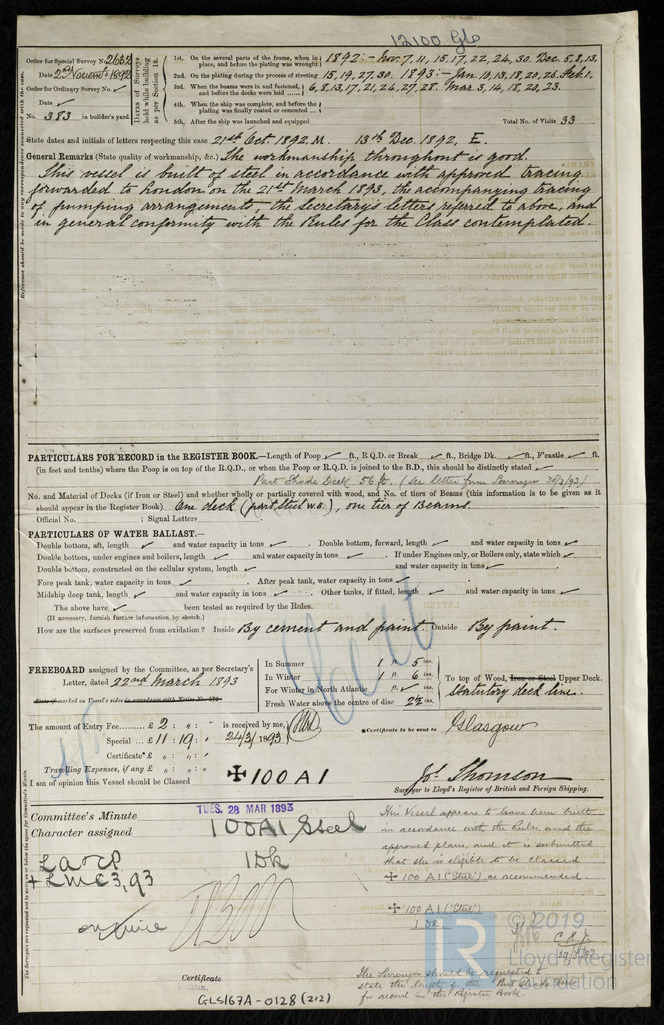 12100 Glo
Order for Special Survey No. 2632
Date 2nd Novemr 1892
Order for Ordinary Survey No. ✓
Date ✓
No. 383 in builder's yard.
Dates of Surveys held while building as per Section 18.
1st. On the several parts of the frame, when in place, and before the plating was wrought 1892:- Nov. 7, 11, 15, 17, 22, 24, 30. Dec. 5, 8, 13,
2nd. On the plating during the process of riveting 15, 19, 27, 30. 1893:- Jan. 10, 13, 18, 20, 26. Feb. 1,
3rd. When the beams were in and fastened, and before the decks were laid 6, 8, 13, 17, 21, 24, 27, 28. Mar. 3, 14, 18, 20, 23.
4th. When the ship was complete, and before the plating was finally coated or cemented
5th. After the ship was launched and equipped
Total No. of Visits 33
State dates and initials of letters respecting this case 21st Oct. 1892. M. 13th Dec. 1892. E.
General Remarks (State quality of workmanship, &c.) The workmanship throughout is good.
This vessel is built of steel in accordance with approved tracing
forwarded to London on the 21st March 1893, the accompanying tracing
of pumping arrangements, the Secretary's letters referred to above, and
in general conformity with the Rules for the Class contemplated.
PARTICULARS FOR RECORD in the REGISTER BOOK.—Length of Poop ✓ ft., R.Q.D. or Break ✓ ft., Bridge Dk. ✓ ft., F'castle ✓ ft.
(in feet and tenths) where the Poop is on top of the R.Q.D., or when the Poop or R.Q.D. is joined to the B.D., this should be distinctly stated ✓
Part Shade Deck 56 ft. (See letter from Surveyor 30/3/93)
No. and Material of Decks (if Iron or Steel) and whether wholly or partially covered with wood, and No. of tiers of Beams (this information is to be given as it
should appear in the Register Book) One deck (part steel W.S.), one tier of Beams.
Official No. ; Signal Letters
PARTICULARS OF WATER BALLAST.—
Double bottom, aft, length ✓ and water capacity in tons ✓. Double bottom, forward, length ✓ and water capacity in tons ✓
Double bottom, under engines and boilers, length ✓ and water capacity in tons ✓. If under Engines only, or Boilers only, state which ✓
Double bottom, constructed on the cellular system, length ✓ and water capacity in tons ✓
Fore peak tank, water capacity in tons ✓. After peak tank, water capacity in tons ✓
Midship deep tank, length ✓ and water capacity in tons ✓. Other tanks, if fitted, length ✓ and water capacity in tons ✓
The above have ✓ been tested as required by the Rules.
(If necessary, furnish further information by sketch.)
How are the surfaces preserved from oxidation? Inside By cement and paint. Outside By paint.
FREEBOARD assigned by the Committee, as per Secretary's
Letter, dated 22nd March 1893
In Summer 1 ft. 5 ins.
In Winter 1 ft. 6 ins.
For Winter in North Atlantic ft. ✓ ins.
Fresh Water above the centre of disc 2½ ins.
To top of Wood, Iron or Steel Upper Deck.
Statutory deck line.
The amount of Entry Fee £ 2 : " : " is received by me,
Special £ 11 : 19 : " 24/3/1893
Certificate* £ " : " : "
Travelling Expenses, if any £ " : " : "
*Certificate to be sent to Glasgow
I am of opinion this Vessel should be Classed ✠ 100 A1
Jos. Thomson
Surveyor to Lloyd's Register of British and Foreign Shipping.
Committee's Minute TUES. 28 MAR 1893
Character assigned 100A1 Steel
1Dk
LA&CP
+ LMC 3,93
This Vessel appears to have been built
in accordance with the Rules and the
approved plans, and it is submitted
that she is eligible to be classed
✠ 100 A1 ("Steel") as recommended.
✠ 100 A1 ("Steel")
1 Dk.
The Surveyor should be requested to
state the length of the "Part Shade Deck"
for record in the Register Book.
Certificate
GLS167A-0128 (2/2)
LR
©2019
Lloyd's Register
Foundation